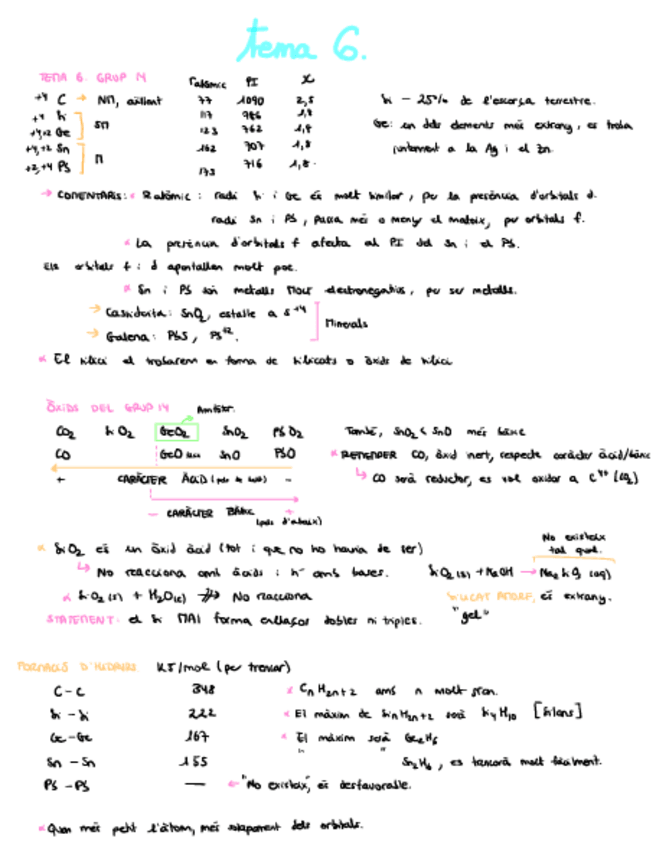 tema 6.
TEMA 6. GRUP 14
r atòmic PI X
+4 C → NM, aïllant 77 1090 2,5
+4 Si 117 786 1,8
+4,+2 Ge SM 123 762 1,8
+4,+2 Sn 162 707 1,8
+2,+4 Pb M 175 716 1,8.
Si - 25% de l'escorça terrestre.
Ge: un dels elements més estrany, es troba
juntament a la Ag i el Zn.
→ COMENTARIS: * R atòmic: radi Si i Ge és molt similar, per la presència d'orbitals d.
radi Sn i Pb, passa més o menys el mateix, per orbitals f.
* La presència d'orbitals f afecta al PI del Sn i el Pb.
Els orbitals f i d apantallen molt poc.
* Sn i Pb són metalls molt electronegatius, per ser metalls.
→ Cassiterita: SnO2, estable a s +4
→ Galena: PbS, Pb+2.
Minerals
* El silici el trobarem en forma de silicats o òxids de silici
ÒXIDS DEL GRUP 14
Amfòter.
CO2 SiO2 GeO2 SnO2 PbO2
CO GeO SnO PbO
+ CARÀCTER ÀCID -
- CARÀCTER BÀSIC +
També, SnO2 < SnO més bàsic
* RECORDER CO, òxid inert, respecte caràcter àcid/bàsic
↳ CO serà reductor, es vol oxidar a C4+ (CO2)
* SiO2 és un òxid àcid (tot i que no ho hauria de ser)
↳ No reacciona amb àcids i sí amb bases.
* SiO2 (s) + H2O(l) ⇏ No reacciona
STATEMENT: el Si MAI forma enllaços dobles ni triples.
No existeix
tal qual.
SiO2 (s) + NaOH → Na2SiO3 (aq)
SILICAT AMORF, és estrany.
"gel"
FORMACIÓ D'HIDRURS KJ/mol (per trencar)
C-C 348 * CnH2n+2 amb n molt gran.
Si-Si 222 * El màxim de SinH2n+2 serà Si4H10 [Silans]
Ge-Ge 167 * El màxim serà Ge2H6
Sn-Sn 155 " " Sn2H6, es trencarà molt fàcilment.
Pb-Pb — ← "No existeix", és desfavorable.
* Quan més petit l'àtom, més solapament dels orbitals.